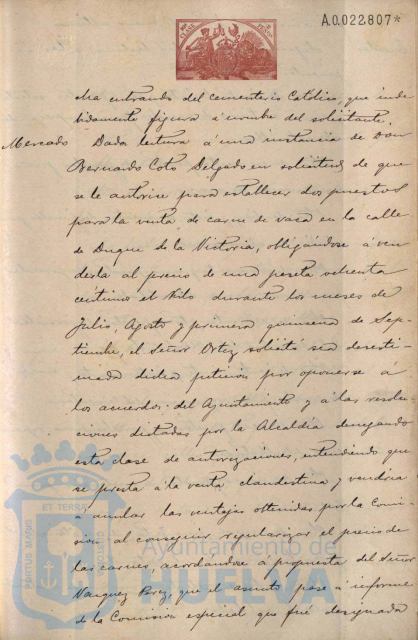 A.0.022807*
ma entrando del cementerio Católico, que inde
bidamente figura á nombre del solicitante.
Mercado Dada lectura á una instancia de Don
Bernardo Coto Delgado en solicitud de que
se le autorice para establecer dos puestos
para la venta de carne de vaca en la calle
de Duque de la Victoria, obligándose á ven
derla al precio de una peseta ochenta
céntimo el kilo durante los meses de
Julio, Agosto y primera quincena de Sep
tiembre, el Señor Ortiz solicitó sea desesti
mada dicha peticion por oponerse á
los acuerdos del Ayuntamiento y á las resolu
ciones dictadas por la Alcaldía denegando
esta clase de autorizaciones, entendiendo que
se presta á la venta clandestina y vendria
á anular las ventajas obtenidas por la Comi
sion al conseguir regularizar el precio de
las carnes, acordándose á propuesta del Señor
Vazquez Perez, que el asunto pase á informe
de la Comision especial que fué designada
PORTUS MARIS
ET TERRAE
CUSTODIA
Ayuntamiento de
HUELVA